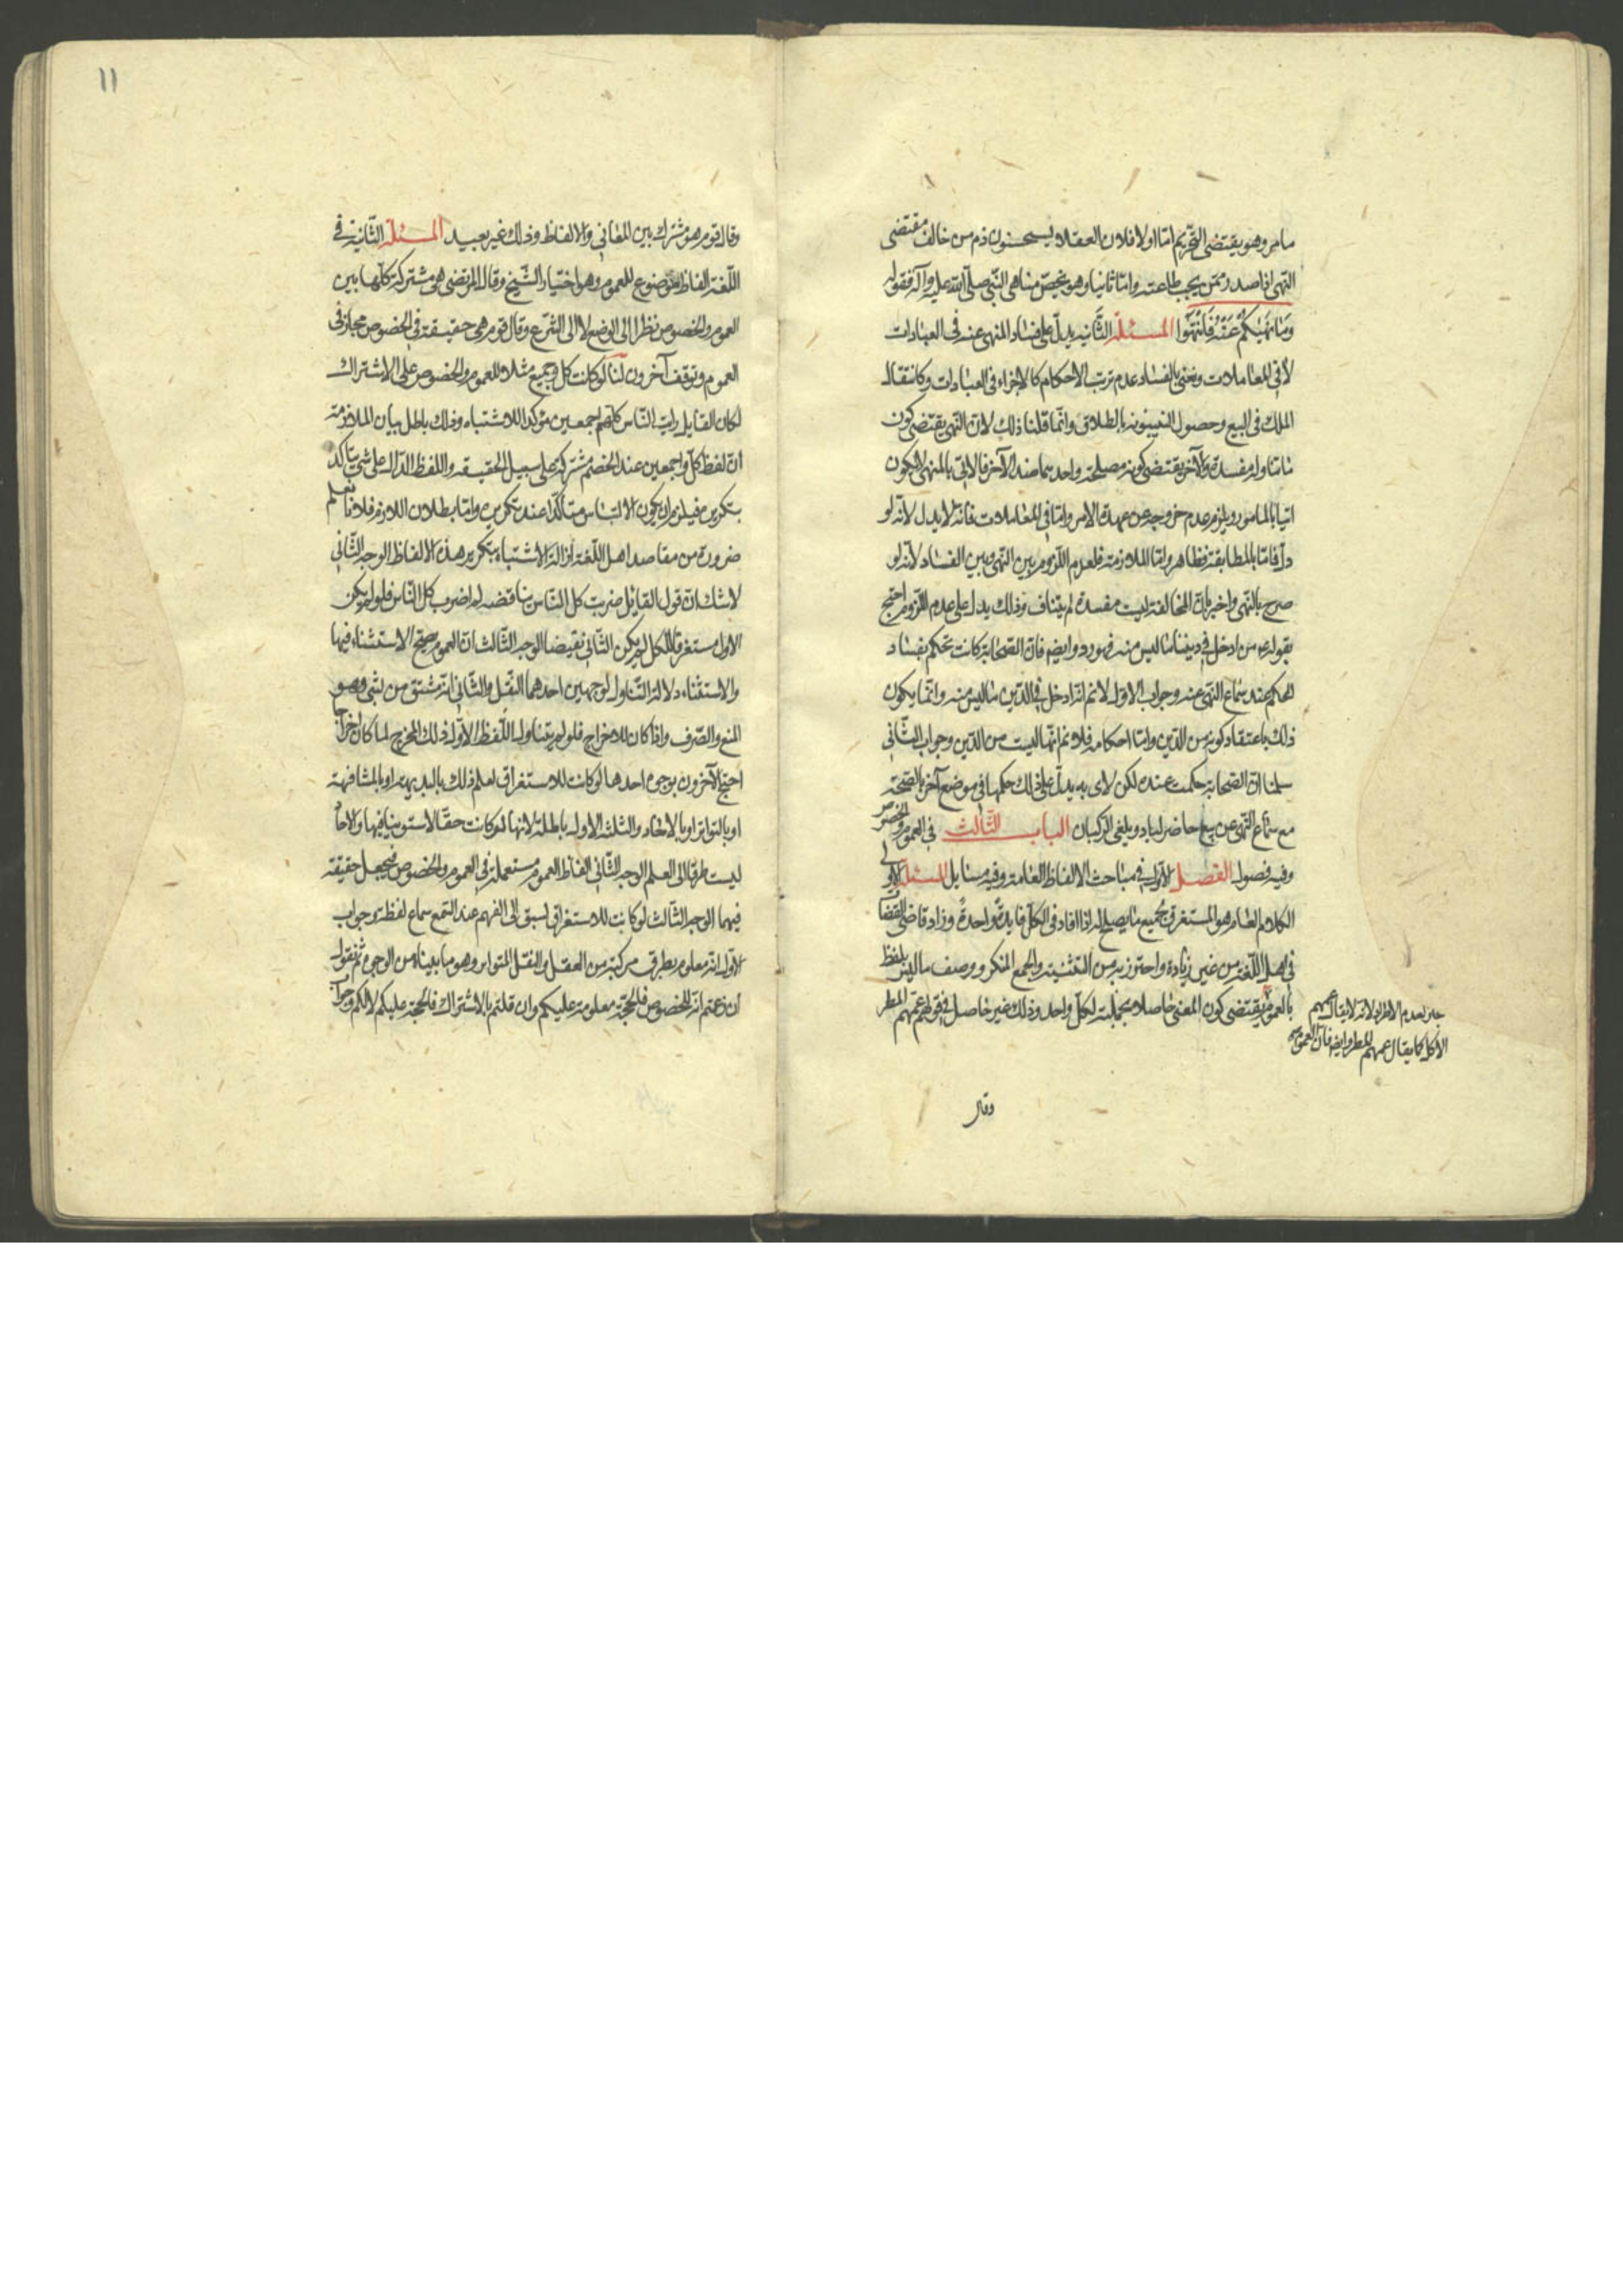 مامر وهو يقتضى التحريم امّا اولا فلان العقلاء يستحسنون ذم من خالف مقتضى
النهى اذا صدر ممّن يجب طاعته وامّا ثانيا وهو يخصّ مناهى النّبى صلّى الله عليه وآله فقوله
وَمَا نَهٰيكُمْ عَنْهُ فَانْتَهُوا المسئلة الثّانيه يدلّ على فساد المنهى عنه فى العبادات
لا فى المعاملات ونعنى بالفساد عدم ترتب الاحكام كالاجزاء فى العبادات وكانتقال
الملك فى البيع وحصول البينونه بالطلاق وانّما قلنا ذلك لان النّهى يقتضى كون
ما تناوله مفسدة والآخر يقتضى كونه مصلحة واحدهما ضد الآخر فالآتى بالمنهى لا يكون
اتيا بالمامور ويلزم عدم خروجه عن عهدة الامر وامّا فى المعاملات فانّه لا يدل لانّه لو
دلّ فامّا بالمطابقة فظاهر وامّا الملازمة فلعدم اللّزوم بين النّهى وبين الفساد لانّه لو
صرح بالنّهى واخبر بانّ المخالفة ليست مفسدة لم يتناف وذلك يدل على عدم اللّزوم احتج
بقوله ع من ادخل فى ديننا ما ليس منه فهو رد وايضا فانّ الصّحابة كانت تحكم بفساد
الحكم عند سماع النّهى عنه وجواب الاوّل لا نم انّه ادخل فى الدّين ما ليس منه وانّما يكون
ذلك باعتقاد كونه من الدّين وامّا احكامه فلا نم انّها ليست من الدّين وجواب الثّانى
سلمنا انّ الصّحابة حكمت عنده لكن لا به يدلّ على ذلك حكمها فى موضع آخر بالصّحة
مع سماع النّهى عن بيع حاضر لباد وتلقى الركبان الباب الثّالث فى العموم والخصوص
وفيه فصول الفصل الاوّل فى مباحث الالفاظ العامة وفيه مسايل المسئلة الاولى
الكلام العام هو المستغرق لجميع ما يصلح له اذا افاد فى الكلّ فايدةً واحدةً وزاد قاضى القضاة
فى اصل اللّغة من غير زيادة واحترز به من التّثنية والجمع المنكر ووصف ما ليس بلفظ
بالعموم يقتضى كون المعنى حاصلا بجملته لكلّ واحد وذلك غير حاصل فى قولهم عمّهم المطر
جاز لعدم الاطراد لانّه لا يقال عمهم
الاكل كما يقال عمهم المطر وايضا فانّ العموم
وقال
١١
وقال قوم هو مشترك بين المعانى والالفاظ وذلك غير بعيد المسئلة الثّانية فى
اللّغة الفاظ موضوع للعموم وهو اختيار الشّيخ وقال المرتضى هى مشتركة كلّها بين
العموم والخصوص نظرا الى الوضع لا الى الشّرع وقال قوم هى حقيقة فى الخصوص مجاز فى
العموم وتوقف آخرون لنا لو كانت كل وجميع مثلا للعموم والخصوص على الاشتراك
لكان القايل رايت النّاس كلّهم اجمعين مؤكدا للاشتباه وذلك باطل بيان الملازمة
انّ لفظ كلّ واجمعين عند الخصم مشتركة على سبيل الحقيقه واللفظ الدّال على شىء يتاكد
بتكريره فيلزم ان يكون الالتباس متأكّدا عند تكريره وامّا بطلان اللازم فلانّا نعلم
ضرورة من مقاصد اهل اللّغة ازالة الاشتباه بتكرير هذه الالفاظ الوجه الثّانى
لا شك انّ قول القائل ضربت كل النّاس يناقضه لم اضرب كلّ النّاس فلو لم يكن
الاول مستغرقا للكل لم يكن الثّانى نقيضا الوجه الثّالث انّ العموم صحّ الاستثناء فيها
والاستثناء دلالة التّناول لوجهين احدهما النّقل والثّانى انّه مشتق من ثنى وهو
المنع والصّرف واذا كان للاخراج فلو لم يتناوله اللّفظ الاوّل ذلك المخرج لما كان اخراجا
احتج الآخرون بوجوه احدها لو كانت للاستغراق لعلم ذلك بالبديهة او بالمشافهة
او بالتواتر او بالاحاد والثلثه الاول باطلة لانها لو كانت حقّا لاستوينا فيها والاحاد
ليست طرقا الى العلم الوجه الثّانى الفاظ العموم مستعملة فى العموم والخصوص فيجعل حقيقة
فيهما الوجه الثّالث لو كانت للاستغراق لسبق الى الفهم عند السّمع سماع لفظه وجواب
الاوّل انّه معلوم بطرق مركبة من العقل والنقل المتواتر وهو ما بيناه من الوجوه ثم نقول
ان زعمتم انّه للخصوص فالحجّة معلومة عليكم وان قلتم بالاشتراك فالحجة عليكم لا لكم وجواب